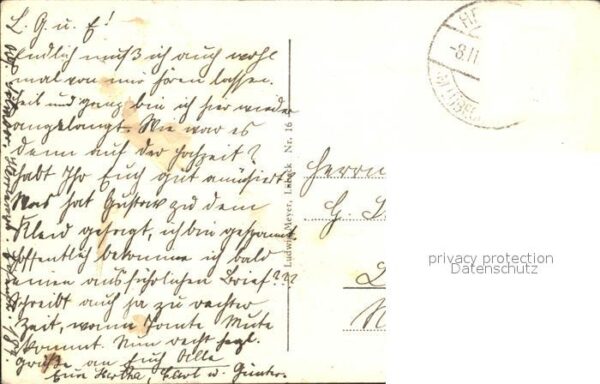 L. G. u. E!
Endlich muß ich auch wohl
mal von mir hören lassen.
Heil und ganz bin ich hier wieder
angelangt. Wie war es
denn auf der Hochzeit?
habt Ihr Euch gut amüsiert
Was hat Gustav zu dem
Kleid gesagt, ich bin gespannt
hoffentlich bekomme ich bald
einen ausführlichen Brief???
Schreibt auch ja zu rechter
Zeit, wann Tante Mute
kommt. Nun recht hezl.
Grüße an Euch Alle
Eure Hertha, Karl u. Günter.
Ludwig Meyer, Lübeck Nr. 16
-8.11
Herrn
G.
privacy protection
Datenschutz